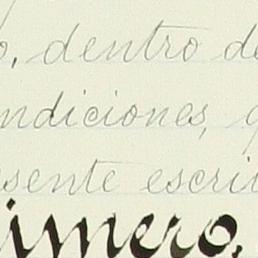 o, dentro de
ndiciones, q
esente escrit
imero,